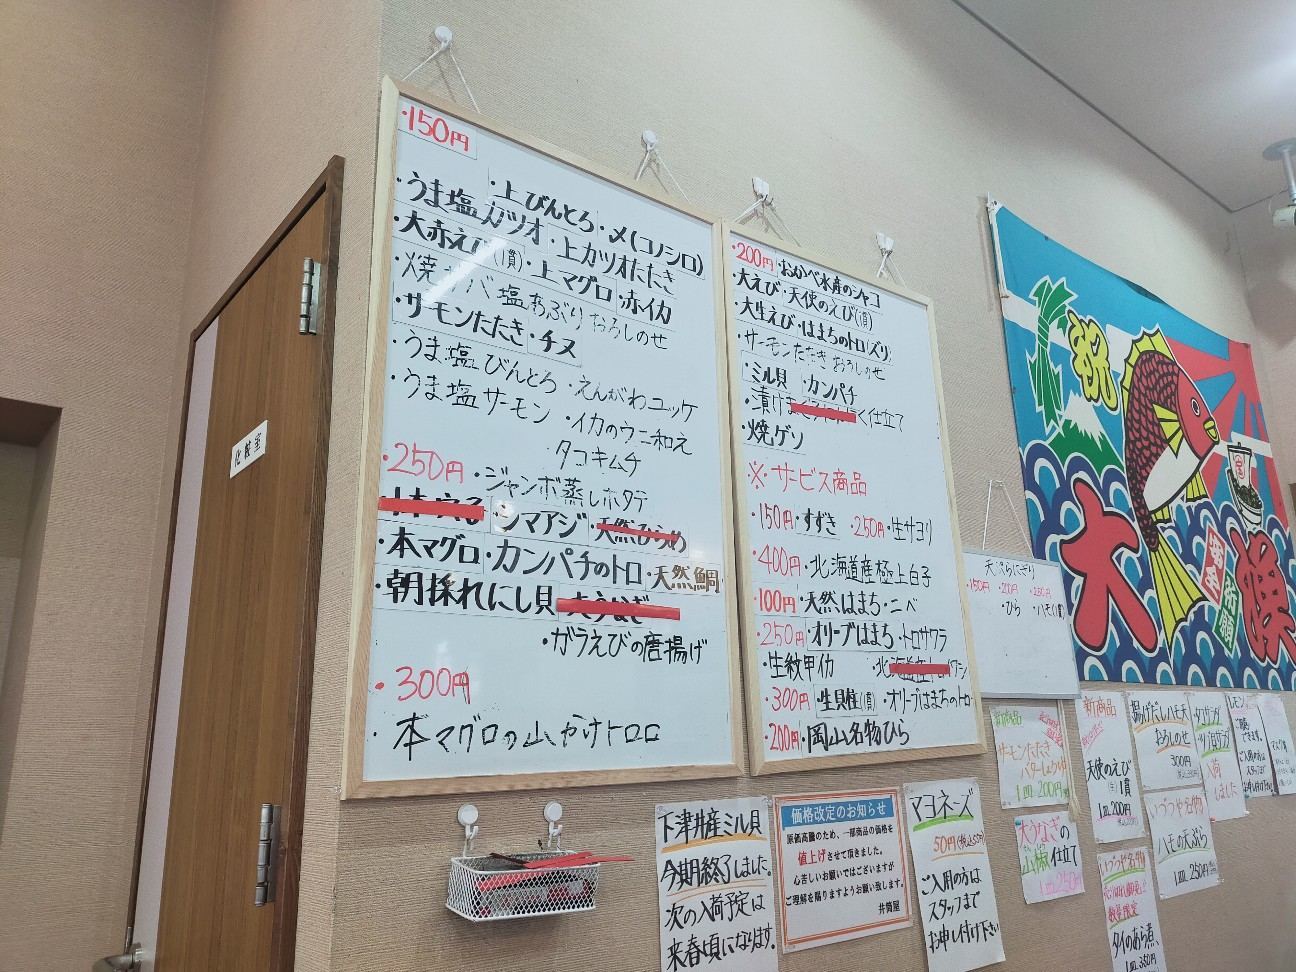 ・150円
・上びんとろ・〆(コノシロ)
・うま塩カツオ・上カツオたたき
・大赤えび(1貫)・上マグロ・赤イカ
・焼サバ塩あぶりおろしのせ
・サーモンたたき・チヌ
・うま塩びんとろ・えんがわユッケ
・うま塩サーモン・イカのウニ和え
タコキムチ
・250円・ジャンボ蒸しホタテ
・シマアジ・天然ひらめ
・本マグロ・カンパチのトロ・天然鯛
・朝採れにし貝
・ガラえびの唐揚げ
・300円
・本マグロの山かけトロロ
・200円・おかべ水産のシャコ
・大えび・天使のえび(1貫)
・大生えび・はまちのトロ(ズリ)
・サーモンたたきおろしのせ
・ミル貝・カンパチ
・漬け 仕立て
・焼ゲソ
※・サービス商品
・150円・すずき 250円・生サヨリ
・400円・北海道産極上白子
・100円・天然はまち・ニベ
・250円・オリーブはまち・トロサワラ
・生紋甲イカ
・300円・生貝柱(1貫)・オリーブはまちのトロ
・200円・岡山名物ひら
天ぷらにぎり
・150円・200円・250円
・ひら・ハモ(1貫)
化粧室
祝
大漁
下津井産ミル貝
今期終了しました。
次の入荷予定は
来春頃になります。
価格改定のお知らせ
原価高騰のため、一部商品の価格を
値上げさせて頂きました。
心苦しいお願いではございますが
ご理解を賜りますようお願い致します。
井筒屋
マヨネーズ
50円(税込55円)
ご入用の方は
スタッフまで
お申し付け下さい
新商品
サーモンたたき
バターしょうゆ
1皿200円
大うなぎの
山椒仕立て
1皿250円
新商品
天使のえび
1貫
1皿200円
揚げだしハモ天
おろしのせ
300円
いづつや名物
ハモの天ぷら
1皿250円
入荷
しました
いづつや名物
数量限定
タイのあら煮
1皿350円